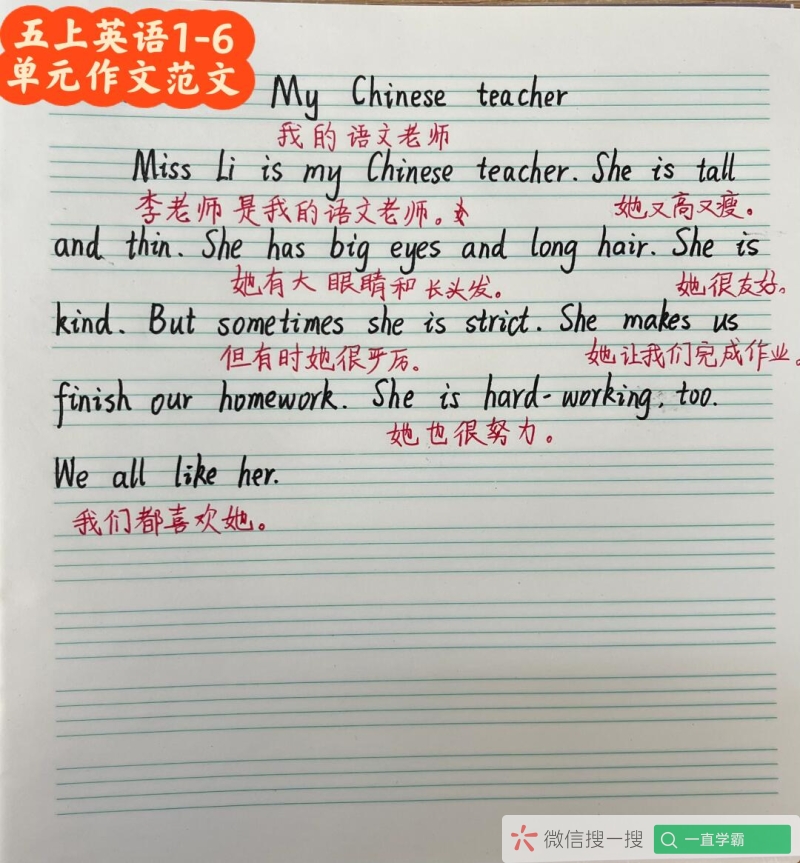 五上英语1-6
单元作文范文
My Chinese teacher
我的语文老师
Miss Li is my Chinese teacher. She is tall
李老师是我的语文老师。 她又高又瘦。
and thin. She has big eyes and long hair. She is
她有大眼睛和长头发。 她很友好。
kind. But sometimes she is strict. She makes us
但有时她很严厉。 她让我们完成作业。
finish our homework. She is hard-working, too.
她也很努力。
We all like her.
我们都喜欢她。
微信搜一搜 一直学霸